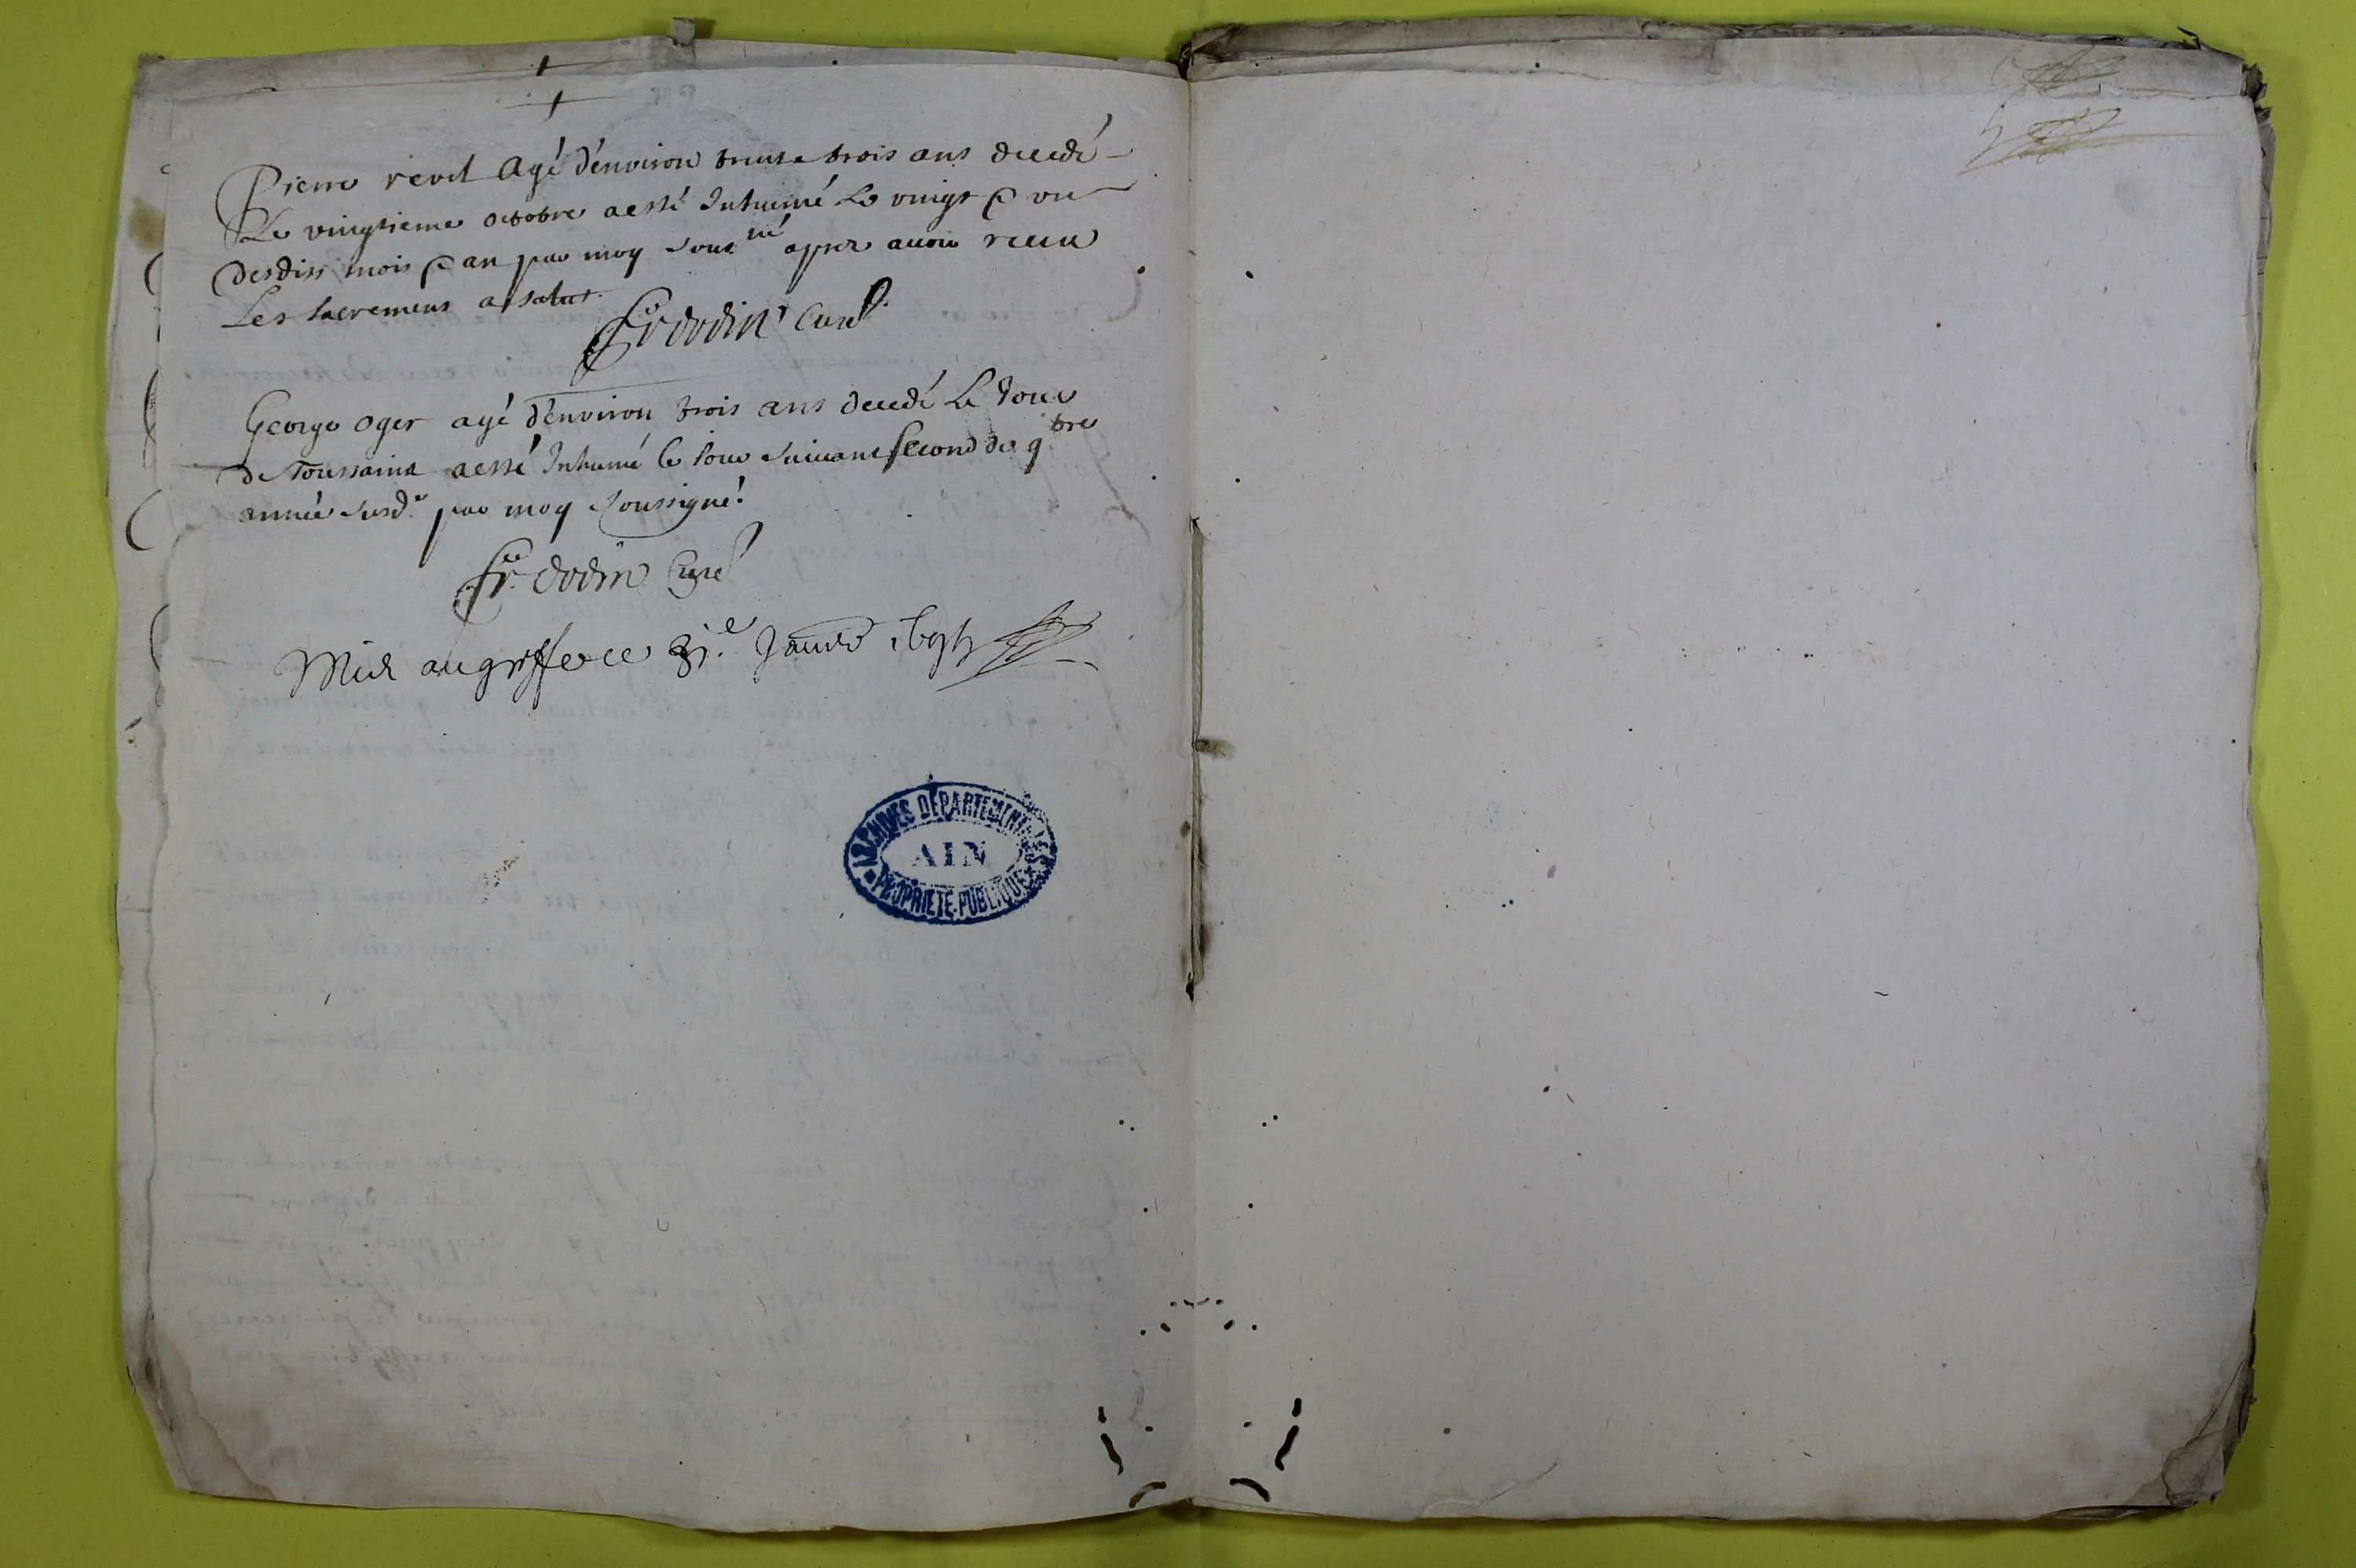 Pierre revel Agé d'environ trente trois ans decedé
Le vingtieme octobre a esté Inhumé Le vingt & un
desdits mois & an par moy sous.né apres avoir receu
Les sacremens a salut.
Fr dodin Curé
George oger agé d'environ trois ans decedé Le Jour
de Toussaint a esté Inhumé le Jour suivant second de 9bre
année susd.e par moy soussigné.
Fr. dodin Curé
Mis au greffe ce 31.e Janvier
ARCHIVES DÉPARTEMENTALES
AIN
PROPRIÉTÉ PUBLIQUE